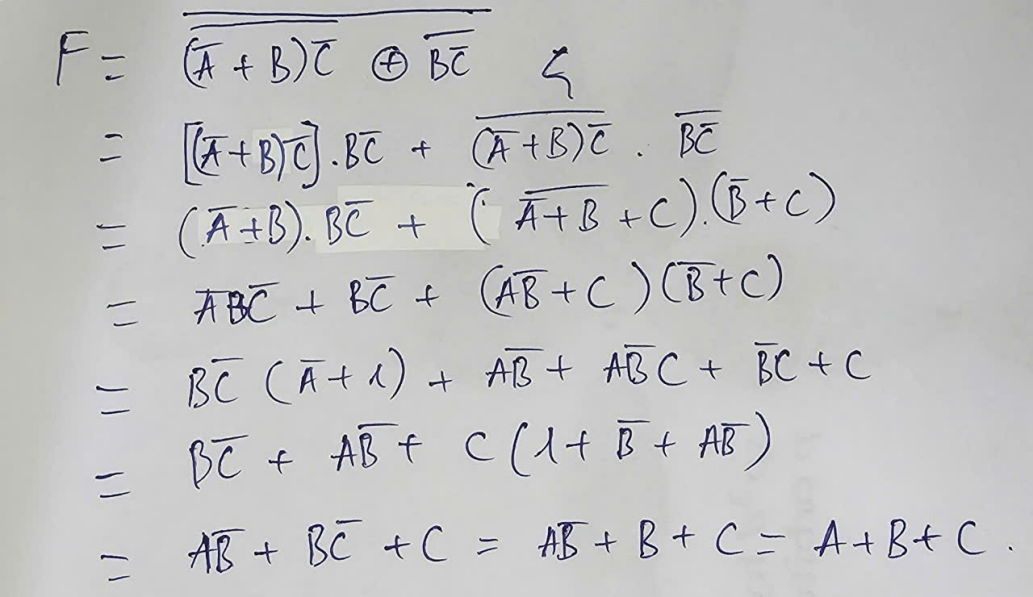 F = \overline{\overline{(\overline{A} + B)\overline{C}} ⊕ \overline{B\overline{C}}}
= [(\overline{A}+B)\overline{C}].B\overline{C} + \overline{(\overline{A}+B)\overline{C}} . \overline{B\overline{C}}
= (\overline{A}+B).B\overline{C} + (\overline{\overline{A}+B} + C).(\overline{B}+C)
= \overline{A}B\overline{C} + B\overline{C} + (A\overline{B}+C)(\overline{B}+C)
= B\overline{C} (\overline{A}+1) + A\overline{B} + A\overline{B}C + \overline{B}C + C
= B\overline{C} + A\overline{B} + C(1+\overline{B}+A\overline{B})
= A\overline{B} + B\overline{C} + C = A\overline{B} + B + C = A+B+C.